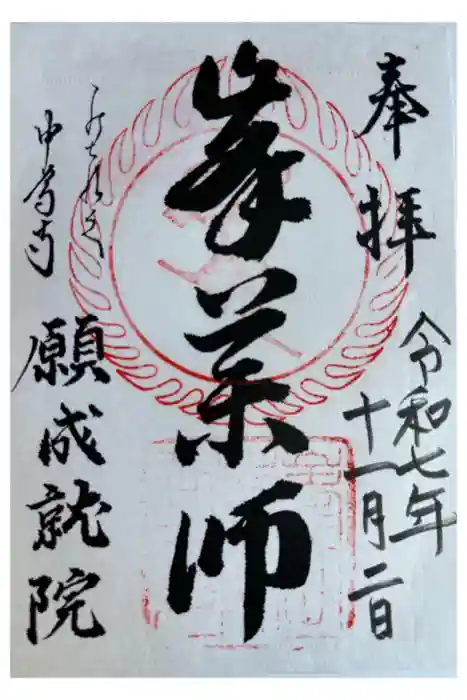 奉拝
令和七年
十一月二日
峯薬師
中尊寺
願成就院